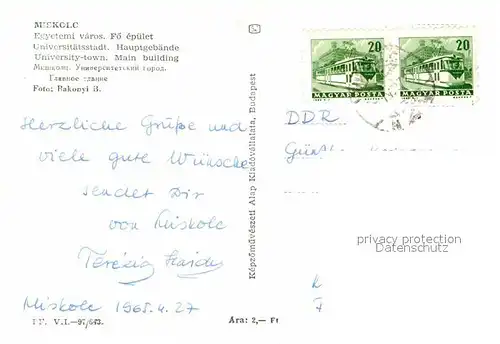 MISKOLC
Egyetemi város. Fő épület
Universitätsstadt. Hauptgebäude
University-town. Main building
Мишкольц. Университетский город.
Главное здание
Foto: Bakonyi B.
Herzliche Grüße und
viele gute Wünsche
sendet Dir
von Miskolc
Terézia
Miskolc 1965.4.27
Ára: 2,— Ft
Képzőművészeti Alap Kiadóvállalata, Budapest
20
MAGYAR POSTA
20
MAGYAR POSTA
DDR
privacy protection
Datenschutz